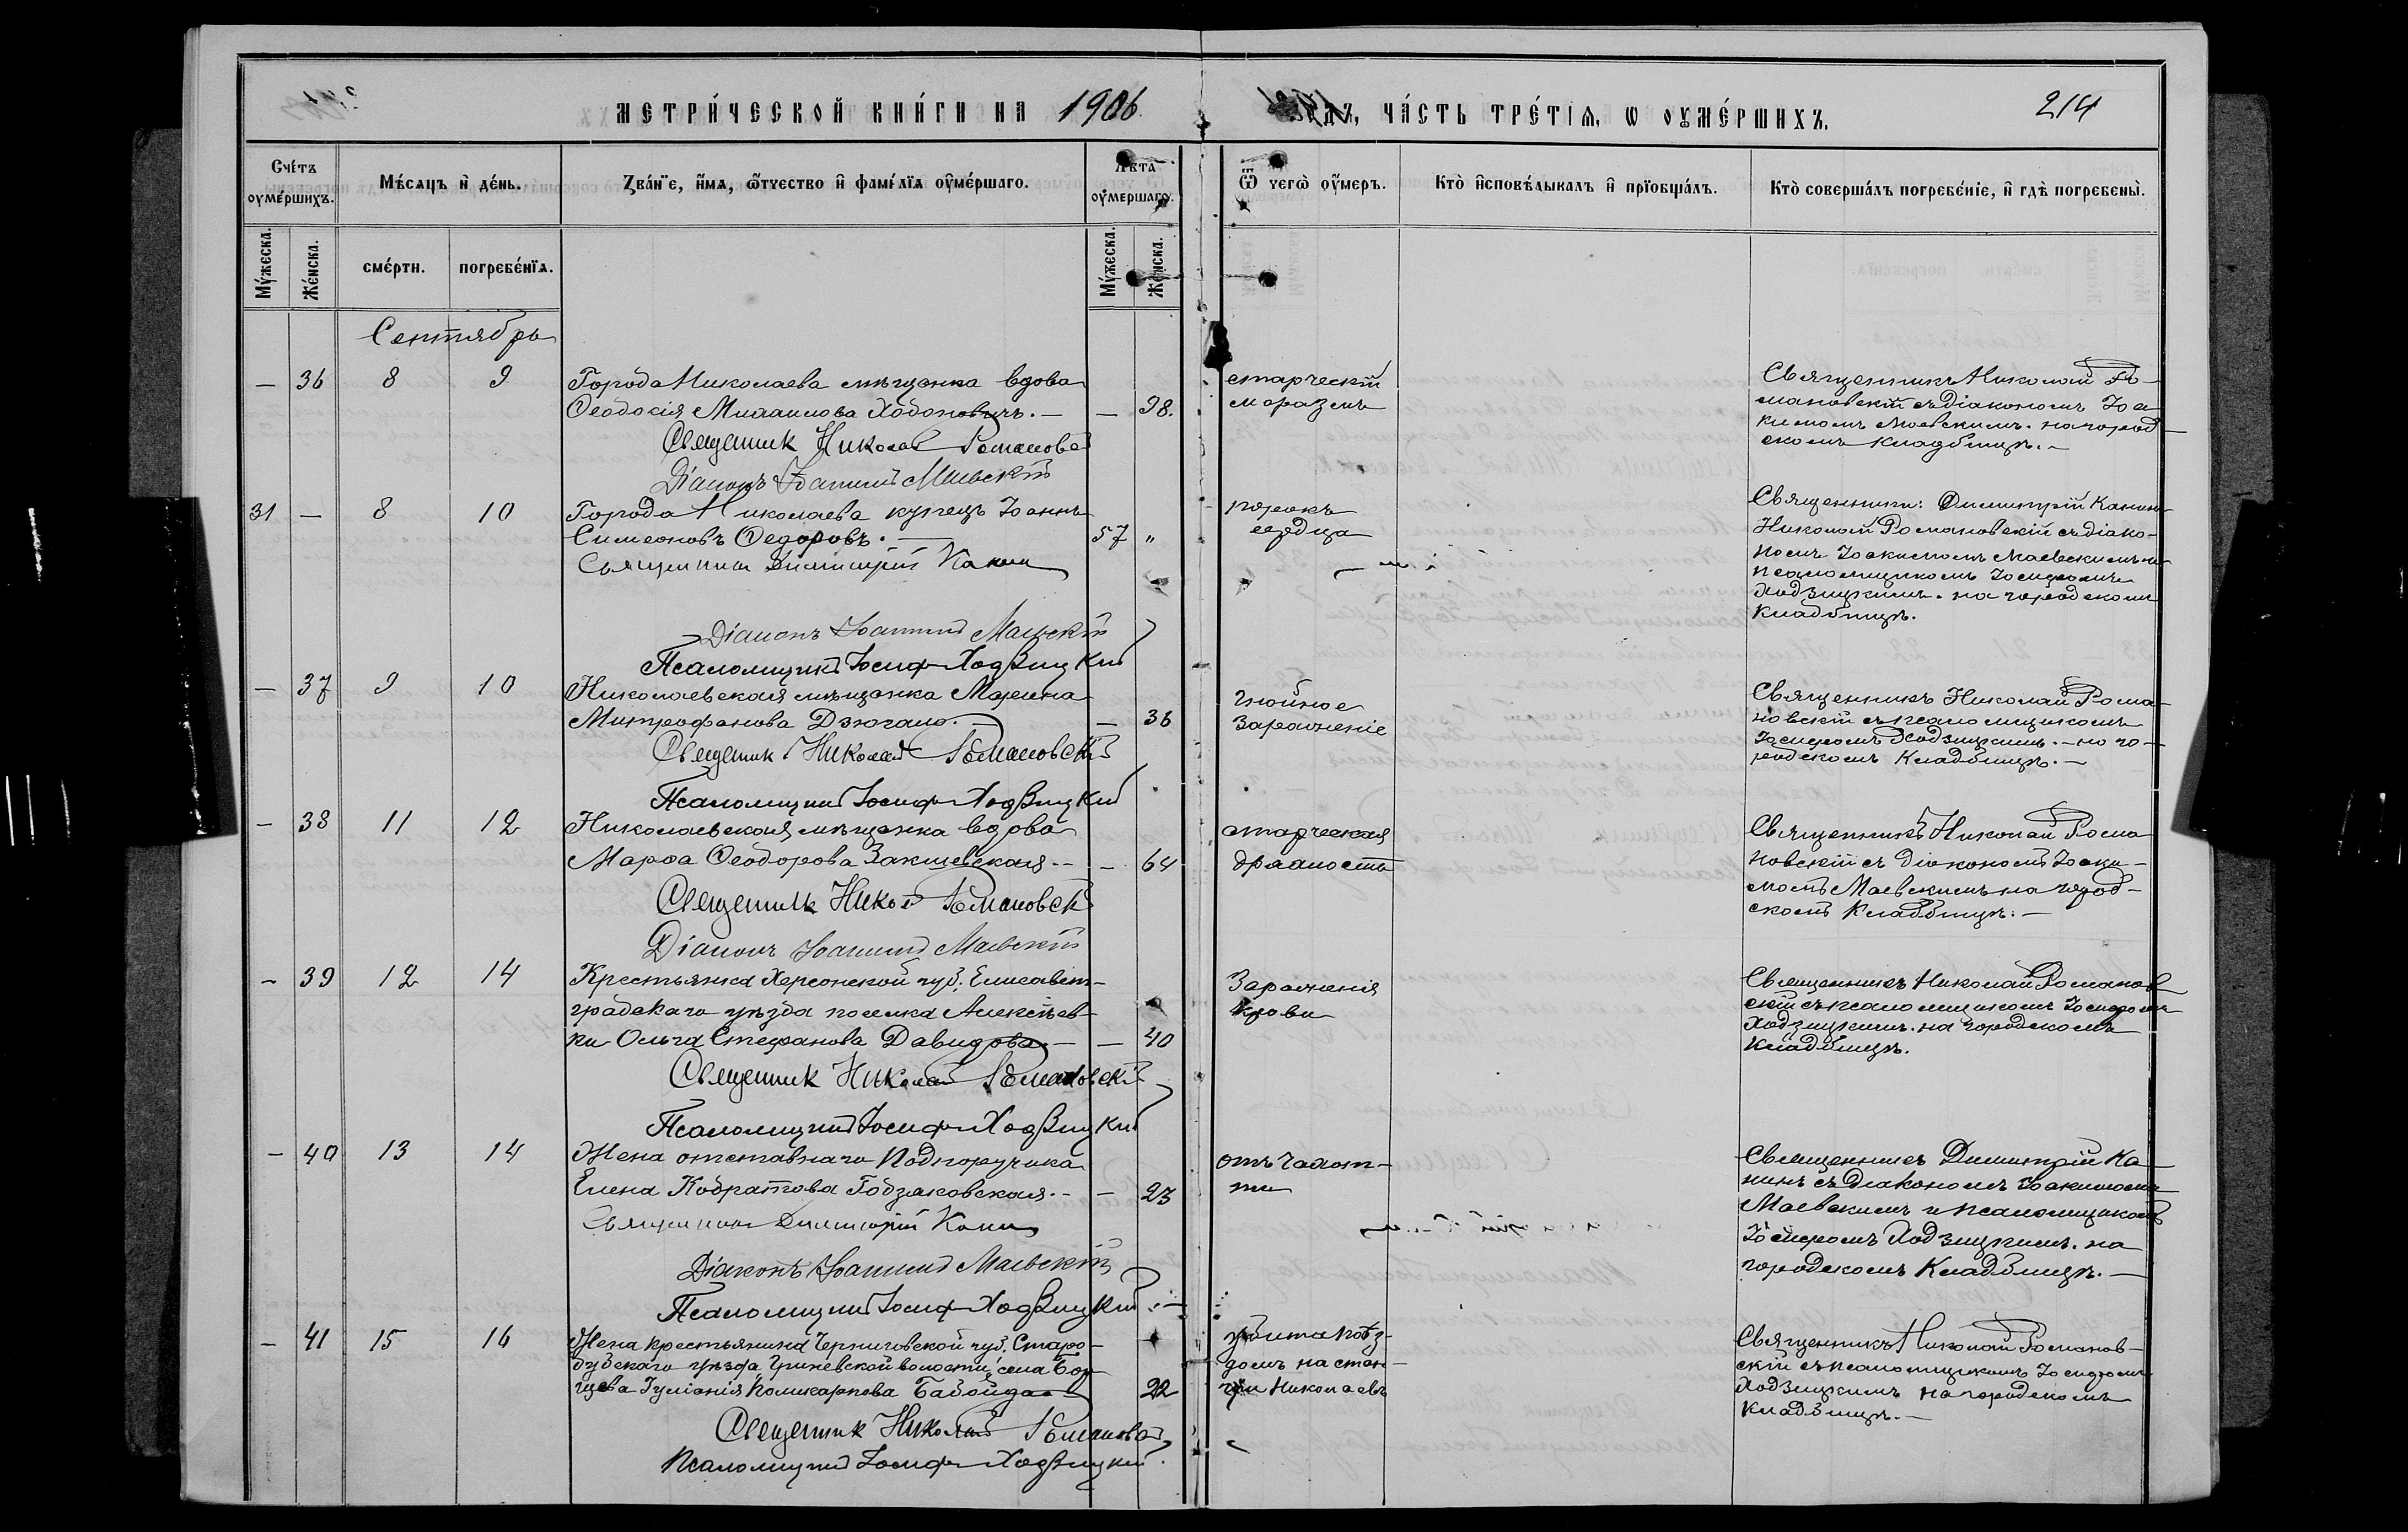 МЕТРИ́ЧЕСКОЙ КНИ́ГИ НА 1906
ГОДЪ, ЧА́СТЬ ТРЕ́ТІѦ, Ѡ ОУМЕ́РШИХЪ.
214
Счéтъ оумéршихъ.
Мѣ́сяцъ и҆ дéнь.
Звáнїе, и҆́мя, ѻ҆́тчество и҆ фамѝлїя оу҆мéршаго.
Лѣта оу҆мершаго.
Ѿ чегѡ̀ оу҆́меръ.
Кто̀ и҆сповѣ́дывалъ и҆ прїобщáлъ.
Кто̀ совершáлъ погребéнїе, и҆ гдѣ̀ погребены̀.
Му́жеска.
Жéнска.
смéрти.
погребéнїя.
Му́жеска.
Жéнска.
Сентябрь
— 36 8 9
Города Николаева мѣщанка вдова
Ѳеодосія Михаилова Ходоновичъ. — — 98.
Священник Николай Романовс
Діаконъ Іоакимъ Маевскій
старческій
маразмъ
Священникъ Николай Ро-
мановскій съ діакономъ Іоа
кимомъ Маевскимъ. на город
скомъ кладбищѣ. —
31 — 8 10
Города Николаева купецъ Іоаннъ
Симеоновъ Ѳедоровъ. — 57 "
Священникъ Димитрій Канин
Діаконъ Іоакимъ Маевскій
Псаломщикъ Іосиф Ходзицкий
порокъ
сердца
Священники: Димитрій Канинъ
Николай Романовскій съ діако-
номъ Іоакимомъ Маевскимъ и
псаломщикомъ Іосифомъ
Ходзицкимъ. на городскомъ
кладбищѣ.
— 37 9 10
Николаевская мѣщанка Марина
Митрофанова Дзюгало. — — 36
Священник Николай Романовскій
Псаломщикъ Іосиф Ходзицкий
гнойное
зараженіе
Священникъ Николай Рома-
новскій съ псаломщикомъ
Іосифомъ Ходзицкимъ. — на го-
родскомъ кладбищѣ. —
— 38 11 12
Николаевская мѣщанка вдова
Марѳа Ѳеодорова Закшевская. — — 64
Священник Никол Романовск
Діаконъ Іоакимъ Маевскій
старческая
дряхлость
Священникъ Николай Рома
новскій съ діакономъ Іоаки-
момъ Маевскимъ на город-
скомъ кладбищѣ. —
— 39 12 14
Крестьянка Херсонской губ. Елисавет-
градскаго уѣзда поселка Алексѣев-
ки Ольга Стефанова Давидова. — — 40
Священник Николай Романовскій
Псаломщикъ Іосиф Ходзицкий
Зараженія
крови
Священникъ Николай Романов
скій съ псаломщикомъ Іосифомъ
Ходзицкимъ. на городскомъ
кладбищѣ.
— 40 13 14
Жена отставнаго Подпоручика
Елена Кодратова Годзяковская. — — 23
Священникъ Димитрій Канин
Діаконъ Іоакимъ Маевскій
Псаломщикъ Іосиф Ходзицкий
отъ чахот-
ки
Священникъ Димитрій Ка
нинъ съ діакономъ Іоакимомъ
Маевскимъ и псаломщикомъ
Іосифомъ Ходзицкимъ. на
городскомъ кладбищѣ. —
— 41 15 16
Жена крестьянина Черниговской губ. Старо-
дубскаго уѣзда, Гриневской волости, села
Іуліанія Поликарпова 22
Священник Николай Романовс
Псаломщикъ Іосиф Ходзицкий
убита поѣз-
домъ на стан-
ціи Николаевъ
Священникъ Николай Романов-
скій съ псаломщикомъ Іосифомъ
Ходзицкимъ на городскомъ
кладбищѣ. —